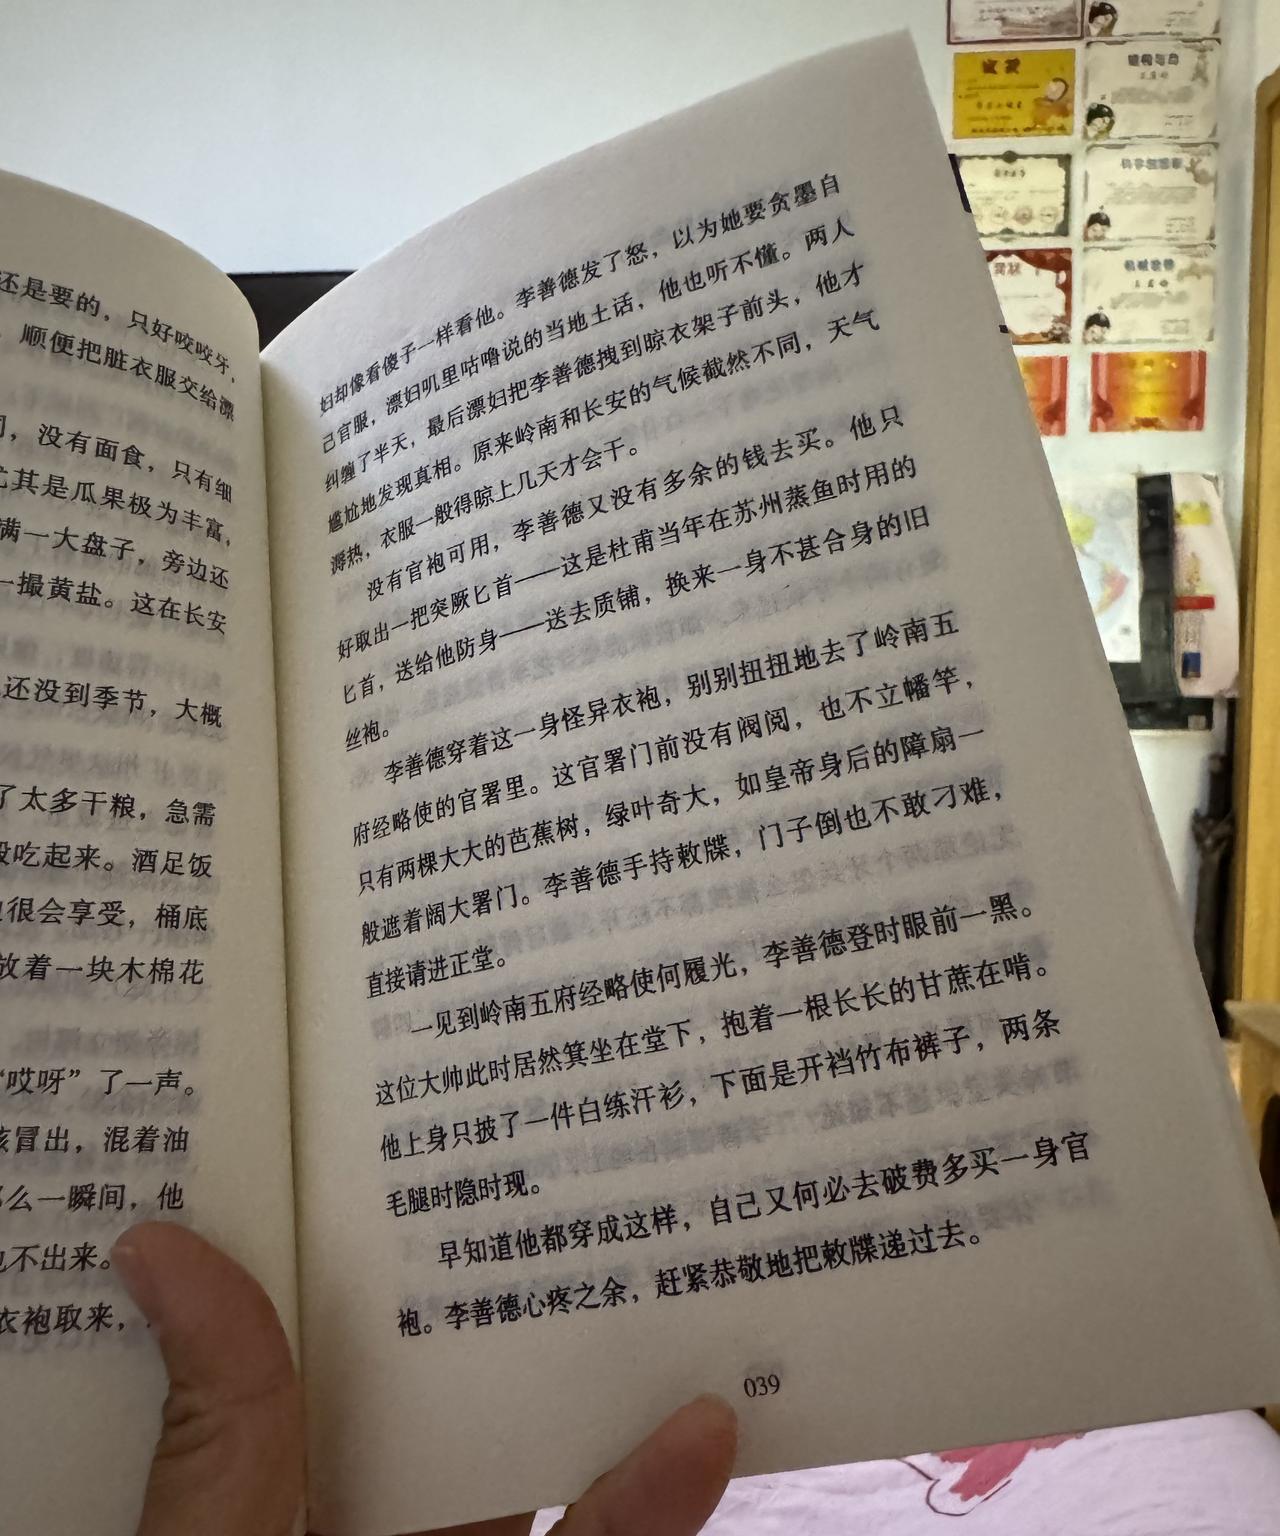 还是要的，只好咬咬牙，
顺便把脏衣服交给漂
，没有面食，只有细
尤其是瓜果极为丰富，
满一大盘子，旁边还
一撮黄盐。这在长安
还没到季节，大概
了太多干粮，急需
吃起来。酒足饭
很会享受，桶底
放着一块木棉花
“哎呀”了一声。
冒出，混着油
么一瞬间，他
也不出来。
衣袍取来，
妇却像看傻子一样看他。李善德发了怒，以为她要贪墨自
己官服，漂妇叽里咕噜说的当地土话，他也听不懂。两人
纠缠了半天，最后漂妇把李善德拽到晾衣架子前头，他才
尴尬地发现真相。原来岭南和长安的气候截然不同，天气
溽热，衣服一般得晾上几天才会干。
没有官袍可用，李善德又没有多余的钱去买。他只
好取出一把突厥匕首——这是杜甫当年在苏州蒸鱼时用的
匕首，送给他防身——送去质铺，换来一身不甚合身的旧
丝袍。
李善德穿着这一身怪异衣袍，别别扭扭地去了岭南五
府经略使的官署里。这官署门前没有阀阅，也不立幡竿，
只有两棵大大的芭蕉树，绿叶奇大，如皇帝身后的障扇一
般遮着阔大署门。李善德手持敕牒，门子倒也不敢刁难，
直接请进正堂。
一见到岭南五府经略使何履光，李善德登时眼前一黑。
这位大帅此时居然箕坐在堂下，抱着一根长长的甘蔗在啃。
他上身只披了一件白练汗衫，下面是开裆竹布裤子，两条
毛腿时隐时现。
早知道他都穿成这样，自己又何必去破费多买一身官
袍。李善德心疼之余，赶紧恭敬地把敕牒递过去。
039